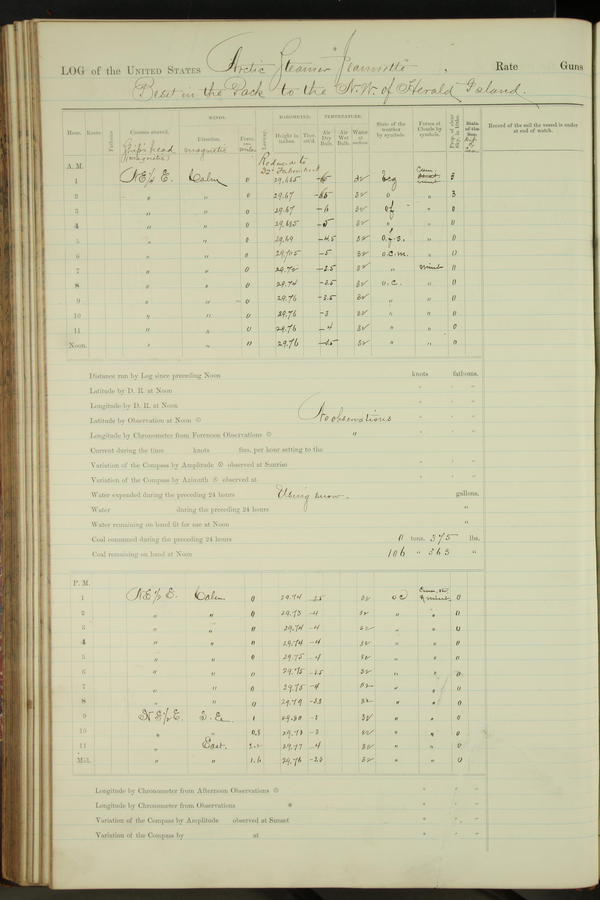 LOG of the UNITED STATES Arctic Steamer "Jeannette" Rate Guns
Beset in the Pack to the N.W. of Herald Island.
WINDS. BAROMETER. TEMPERATURE.
Hour. Knots. Fathoms. Courses steered. Direction. Force. Leeway. Height in Inches. Ther. att'd. Air Dry Bulb. Air Wet Bulb. Water at surface. State of the weather by symbols. Forms of Clouds by symbols. Prop. of clear Sky, in 10ths. State of the Sea. Record of the sail the vessel is under at end of watch.
Ship's head (magnetic) magnetic miles
Reduced to 32° Fahrenheit
A. M.
1 NE½E. Calm 0 29.665 32 3
2 " " 0 29.67 32 " 3
3 " " 0 29.67 32 " 0
4 " " 0 29.685 -5 32 " " 0
5 " " 0 29.69 -4.5 32 o.f.s. " 0
6 " " 0 29.705 -5 32 o.c.m. " 0
7 " " 0 29.72 -3.5 32 " 0
8 " " 0 29.74 -2.5 32 o.c. " 0
9 " " 0 29.76 -3.5 32 " " 0
10 " " 0 29.76 -3 32 " " 0
11 " " 0 29.76 -4 32 " " 0
Noon. " " 0 29.76 32 " " 0
Distance run by Log since preceding Noon knots fathoms.
Latitude by D. R. at Noon
Longitude by D. R. at Noon
Latitude by Observation at Noon No observations
Longitude by Chronometer from Forenoon Observations "
Current during the time knots fms. per hour setting to the
Variation of the Compass by Amplitude observed at Sunrise
Variation of the Compass by Azimuth observed at
Water expended during the preceding 24 hours Using snow. gallons.
Water during the preceding 24 hours "
Water remaining on hand fit for use at Noon "
Coal consumed during the preceding 24 hours 0 tons. 375 lbs.
Coal remaining on hand at Noon 106 " 563 "
P. M.
1 NE½E. Calm 0 29.74 32 oc 0
2 " " 0 29.73 -4 32 " " 0
3 " " 0 29.74 -4 32 " " 0
4 " " 0 29.74 -4 32 " " 0
5 " " 0 29.75 -4 32 " " 0
6 " " 0 29.75 32 " " 0
7 " " 0 29.75 -4 32 " " 0
8 " " 0 29.79 32 " " 0
9 NE½E. 1 29.80 32 " " 0
10 " " 0.8 29.78 -3 32 " " 0
11 " East. 29.77 -4 32 " " 0
Mid. " " 1.6 29.76 32 " " 0
Longitude by Chronometer from Afternoon Observations
Longitude by Chronometer from Observations
Variation of the Compass by Amplitude observed at Sunset
Variation of the Compass by at